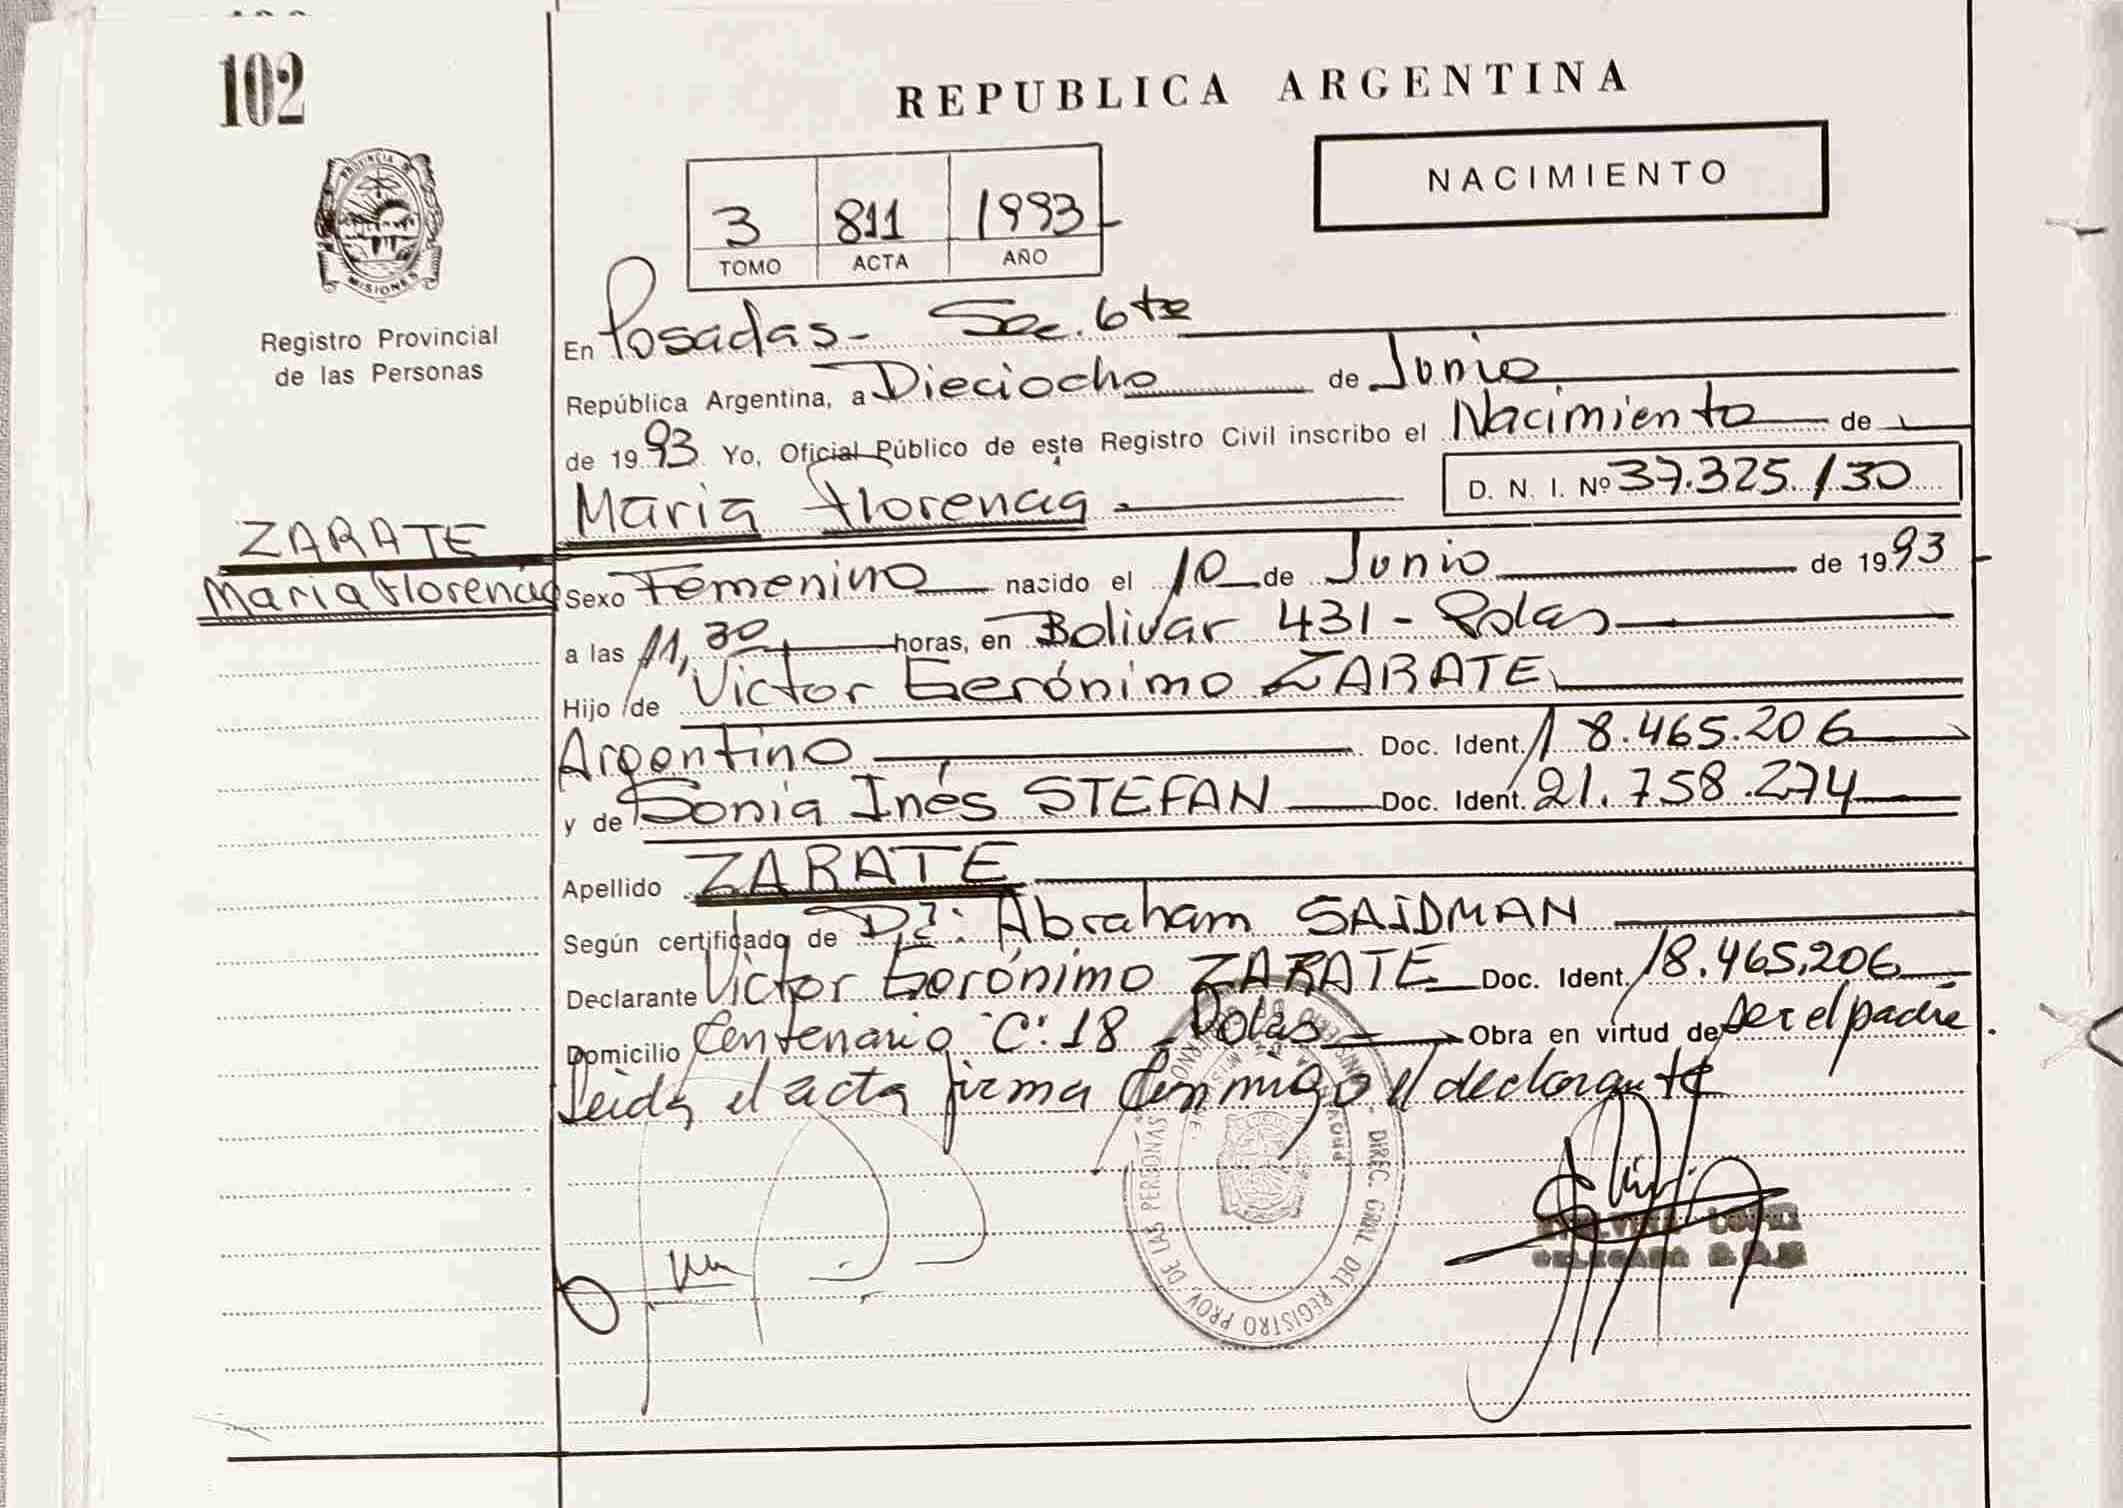 102
REPUBLICA ARGENTINA
NACIMIENTO
3 811 1993
TOMO ACTA AÑO
PROVINCIA DE MISIONES
Registro Provincial
de las Personas
En Posadas - Sec. 6ta
República Argentina, a Dieciocho de Junio
de 1993 Yo, Oficial Público de este Registro Civil inscribo el Nacimiento de
Maria Florencia D. N. I. Nº 37.325.130
ZARATE
Maria Florencia
Sexo Femenino nacido el 10 de Junio de 1993
a las 11,30 horas, en Bolivar 431 - Pdas
Hijo de Victor Gerónimo ZARATE
Argentino Doc. Ident. 18.465.206
y de Sonia Inés STEFAN Doc. Ident. 21.758.274
Apellido ZARATE
Según certificado de Dr: Abraham SAIDMAN
Declarante Victor Gerónimo ZARATE Doc. Ident. 18.465.206
Domicilio Centenario C: 18 - Pdas Obra en virtud de ser el padre.
Leida el acta firma conmigo el declarante
DIREC. GRAL. DEL REGISTRO PROV. DE LAS PERSONAS